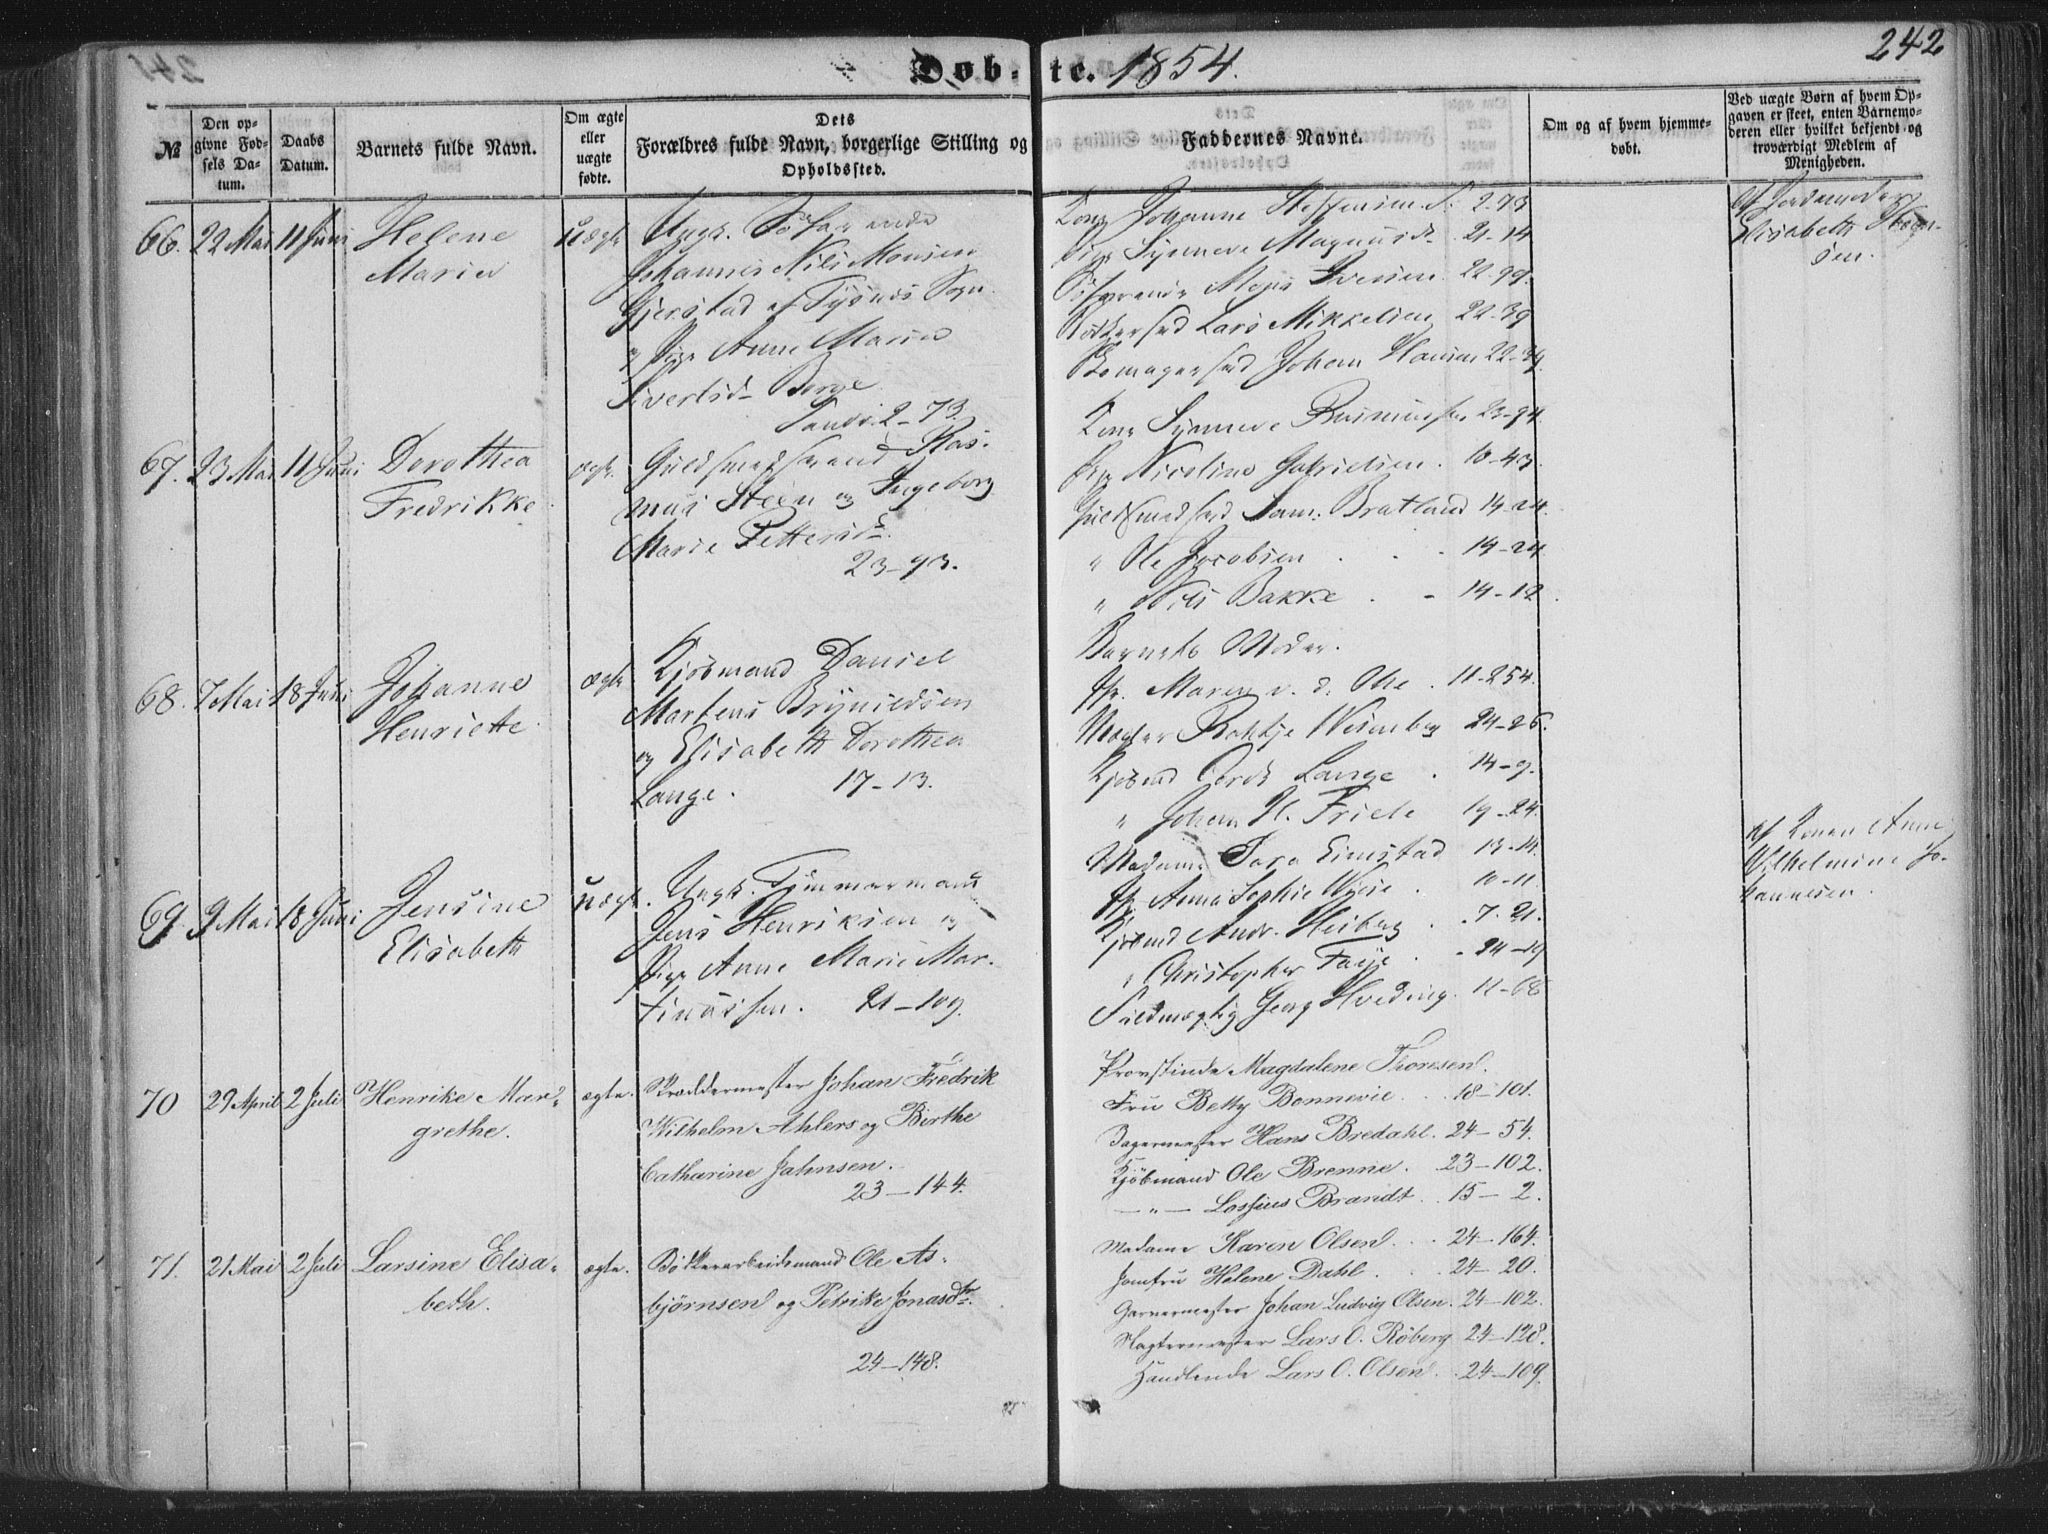 Døb-te. 1854.
242
№
Den opgivne Fødsels Datum.
Daabs Datum.
Barnets fulde Navn.
Om ægte eller uægte fødte.
Dets Forældres fulde Navn, borgerlige Stilling og Opholdssted.
Faddernes Navne.
Om og af hvem hjemmedøbt.
Ved uægte Børn af hvem Opgaven er skeet, enten Barnemoderen eller hvilket bekjendt og troværdigt Medlem af Menigheden.
66. 22 Mai 11 Juni Helene Marie
uægte
Ungk. Søfarende
Johannes Nils Monsen
Gjerstad af Tysnes Sogn
og Pige Anne Marie
Sivertsd. Borge
Sandv. 2-73.
Kone Johanne Steffensen S. 2-73
Pige Synneve Magnusd. 21-14
Søfarende Mons Iversen 22-99.
Bødkersvd Lars Mikkelsen 22-39
Skomagersvd Johan Hansen 22-39.
af Jordemoder
Elisabeth Thomsen.
67. 23 Mai 11 Juni Dorothea
Fredrikke
ægte
Guldsmedsvend Rasmus Steen og Ingeborg
Marie Pettersd.
23-93.
Kone Synneve Rasmussen 23-94
Pige Nicoline Gabrielsen. 10-43.
Guldsmedsvd Sam: Bratland 14-24.
" Ole Jacobsen . . 14-24
" Nils Bakke . - 14-12.
68. 7 Mai 18 Juni Johanne
Henriette.
ægte
Kjøbmand Daniel
Martens Brynildsen
og Elisabeth Dorothea
Lange. 17-13.
Barnets Moder.
Jfr. Maren v. d. Ohe. 11-254.
Mægler Rohtje Wesenberg 24-26.
Kjøbmd Gerdt Lange . 14-9.
" Johan H. Friele 19-24.
69. 9 Mai 18 Juni Jensine
Elisabeth
uægte.
Ungk. Tømmermand
Jens Henriksen og
Pige Anne Marie Martinussen. 21-109.
Madame Sara Einstad 13-14.
Jfr. Anna Sophie Wiese . 10-11.
Kjøbmd Andr. Heiberg . 7. 21.
" Christopher Faye . 24-19
Fuldmægtig Georg Hveding. 11-68
af Konen Anne
Wilhelmine Johannesen.
70 29 April 2 Juli Henrike Margrethe.
ægte.
Skræddermester Johan Fredrik
Wilhelm Ahlers og Birthe
Catharine Jahnsen.
23-144.
Provstinde Magdalene Thoresen.
Fru Betty Bonnevie . . 18-101.
Jagermester Hans Bredahl. 24-54.
Kjøbmand Ole Brenne. 23-102.
-"- Lossius Brandt. 15-2.
71. 21 Mai 2 Juli Larsine Elisabeth.
ægte.
Bødkerarbeidsmand Ole Asbjørnsen og Petrike Jonasdtr.
24-148.
Madame Karen Olsen. . . 24-164.
Jomfru Helene Dahl. . . 24-20.
Garvermester Johan Ludvig Olsen. 24-102.
Slagtermester Lars O. Røberg 24-128.
Handlende Lars O. Olsen. . 24-109.